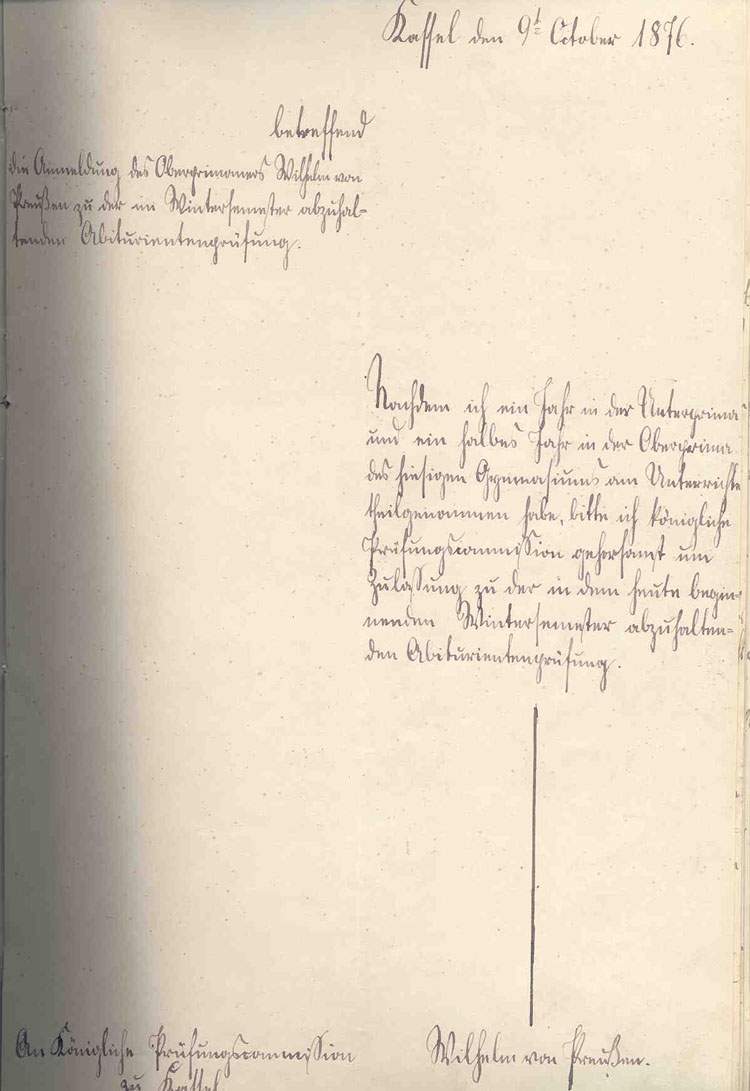 Kassel den 9t October 1876.
betreffend
die Anmeldung des Oberprimaners Wilhelm von
Preußen zu der im Wintersemester abzuhal-
tenden Abiturientenprüfung.
Nachdem ich ein Jahr in der Unterprima
und ein halbes Jahr in der Oberprima
des hiesigen Gymnasiums am Unterrichte
theilgenommen habe, bitte ich königliche
Prüfungscommission gehorsamst um
Zulassung zu der in dem heute begin-
nenden Wintersemester abzuhalten-
den Abiturientenprüfung.
An Königliche Prüfungscommission
zu Kassel
Wilhelm von Preußen.